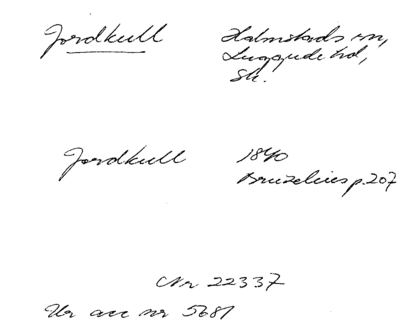 Jordkull Halmstads sn,
Luggude hd,
Sk.
Jordkull 1840
Bruzelius p. 207
Nr 22337
Ur acc nr 5681